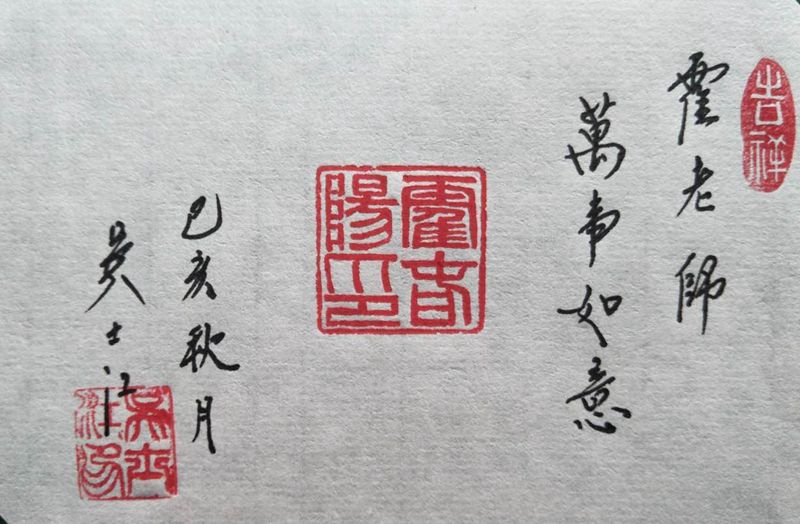 吉祥
霍老師
萬事如意
霍春陽印
己亥秋月
吴士江